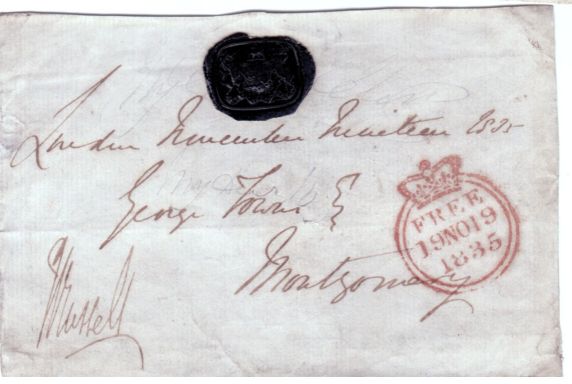 London November Nineteen 1835
George Town
Montgomery
J Russell
FREE
19NO19
1835